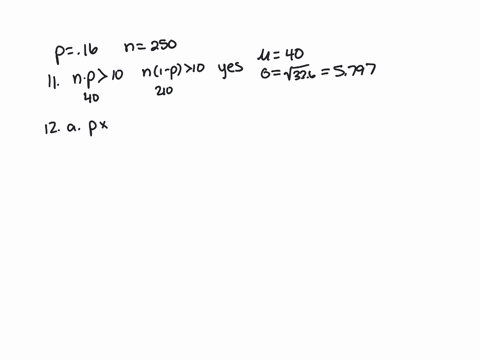 p=.16 n=250
11. n·p>10 n(1-p)>10 yes μ=40
40 210 σ=√33.6 = 5.797
12. a. px